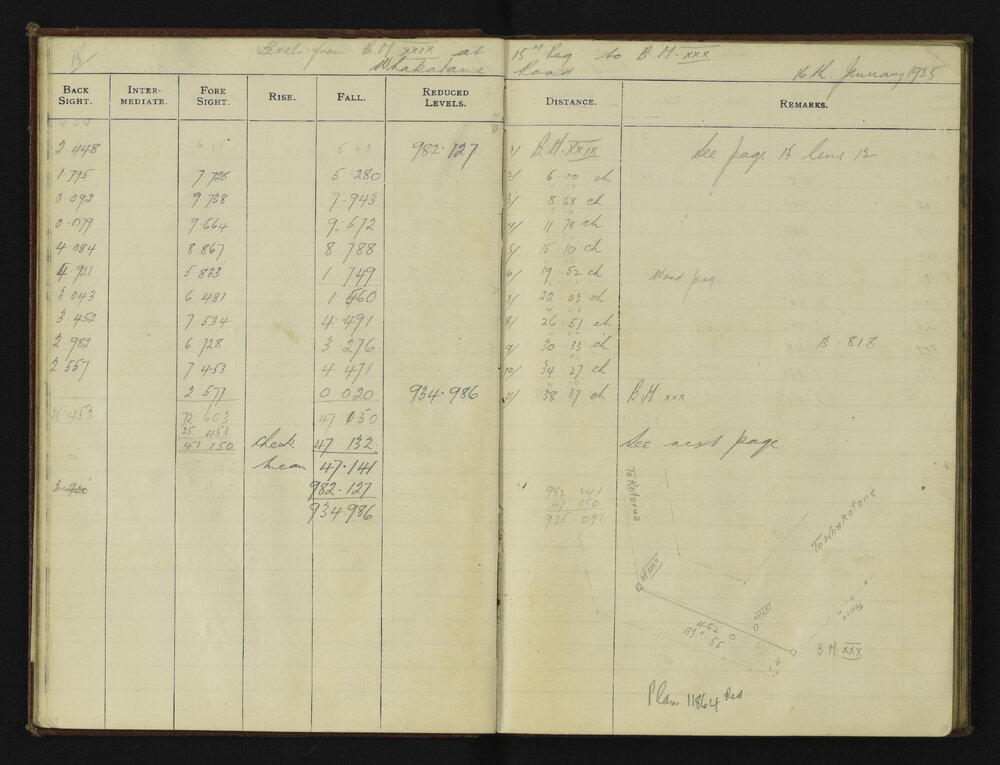 15/ Levels from B.M. XXIX at 15 M Peg to B.M. XXX
Whakatane Road 16th January 1925
BACK SIGHT. INTER-MEDIATE. FORE SIGHT. RISE. FALL. REDUCED LEVELS. DISTANCE. REMARKS.
2.448 982.127 1/ B.M. XXIX See page 13 line 12
1.795 7 728 5.280 2/ 6.00 ch "
0.092 9 738 7.943 3/ 8.68 ch
0.079 9 664 9.572 4/ 11.78 ch "
4 084 8 867 8 788 5/ 15.10 ch
4 921 5 833 1 749 6/ 19.52 ch Wood peg
3.043 6.481 1.560 7/ 22 03 ch
3.452 7 534 4.491 8/ 26.51 ch
2 982 6 728 3 276 9/ 30.33 ch B.818
2 557 7 453 4 471 10/ 34.27 ch
2 577 0 020 934.986 11/ 38 37 ch B.M XXX
25 453 72.603 47 150
25 453
47 150 check 47.132 See next page
mean 47.141
982.127
934.986
982 241
47 150
935 091
To Rotorua
To Whakatane
XXXI
B.M. XXX
Plan 11864 Red